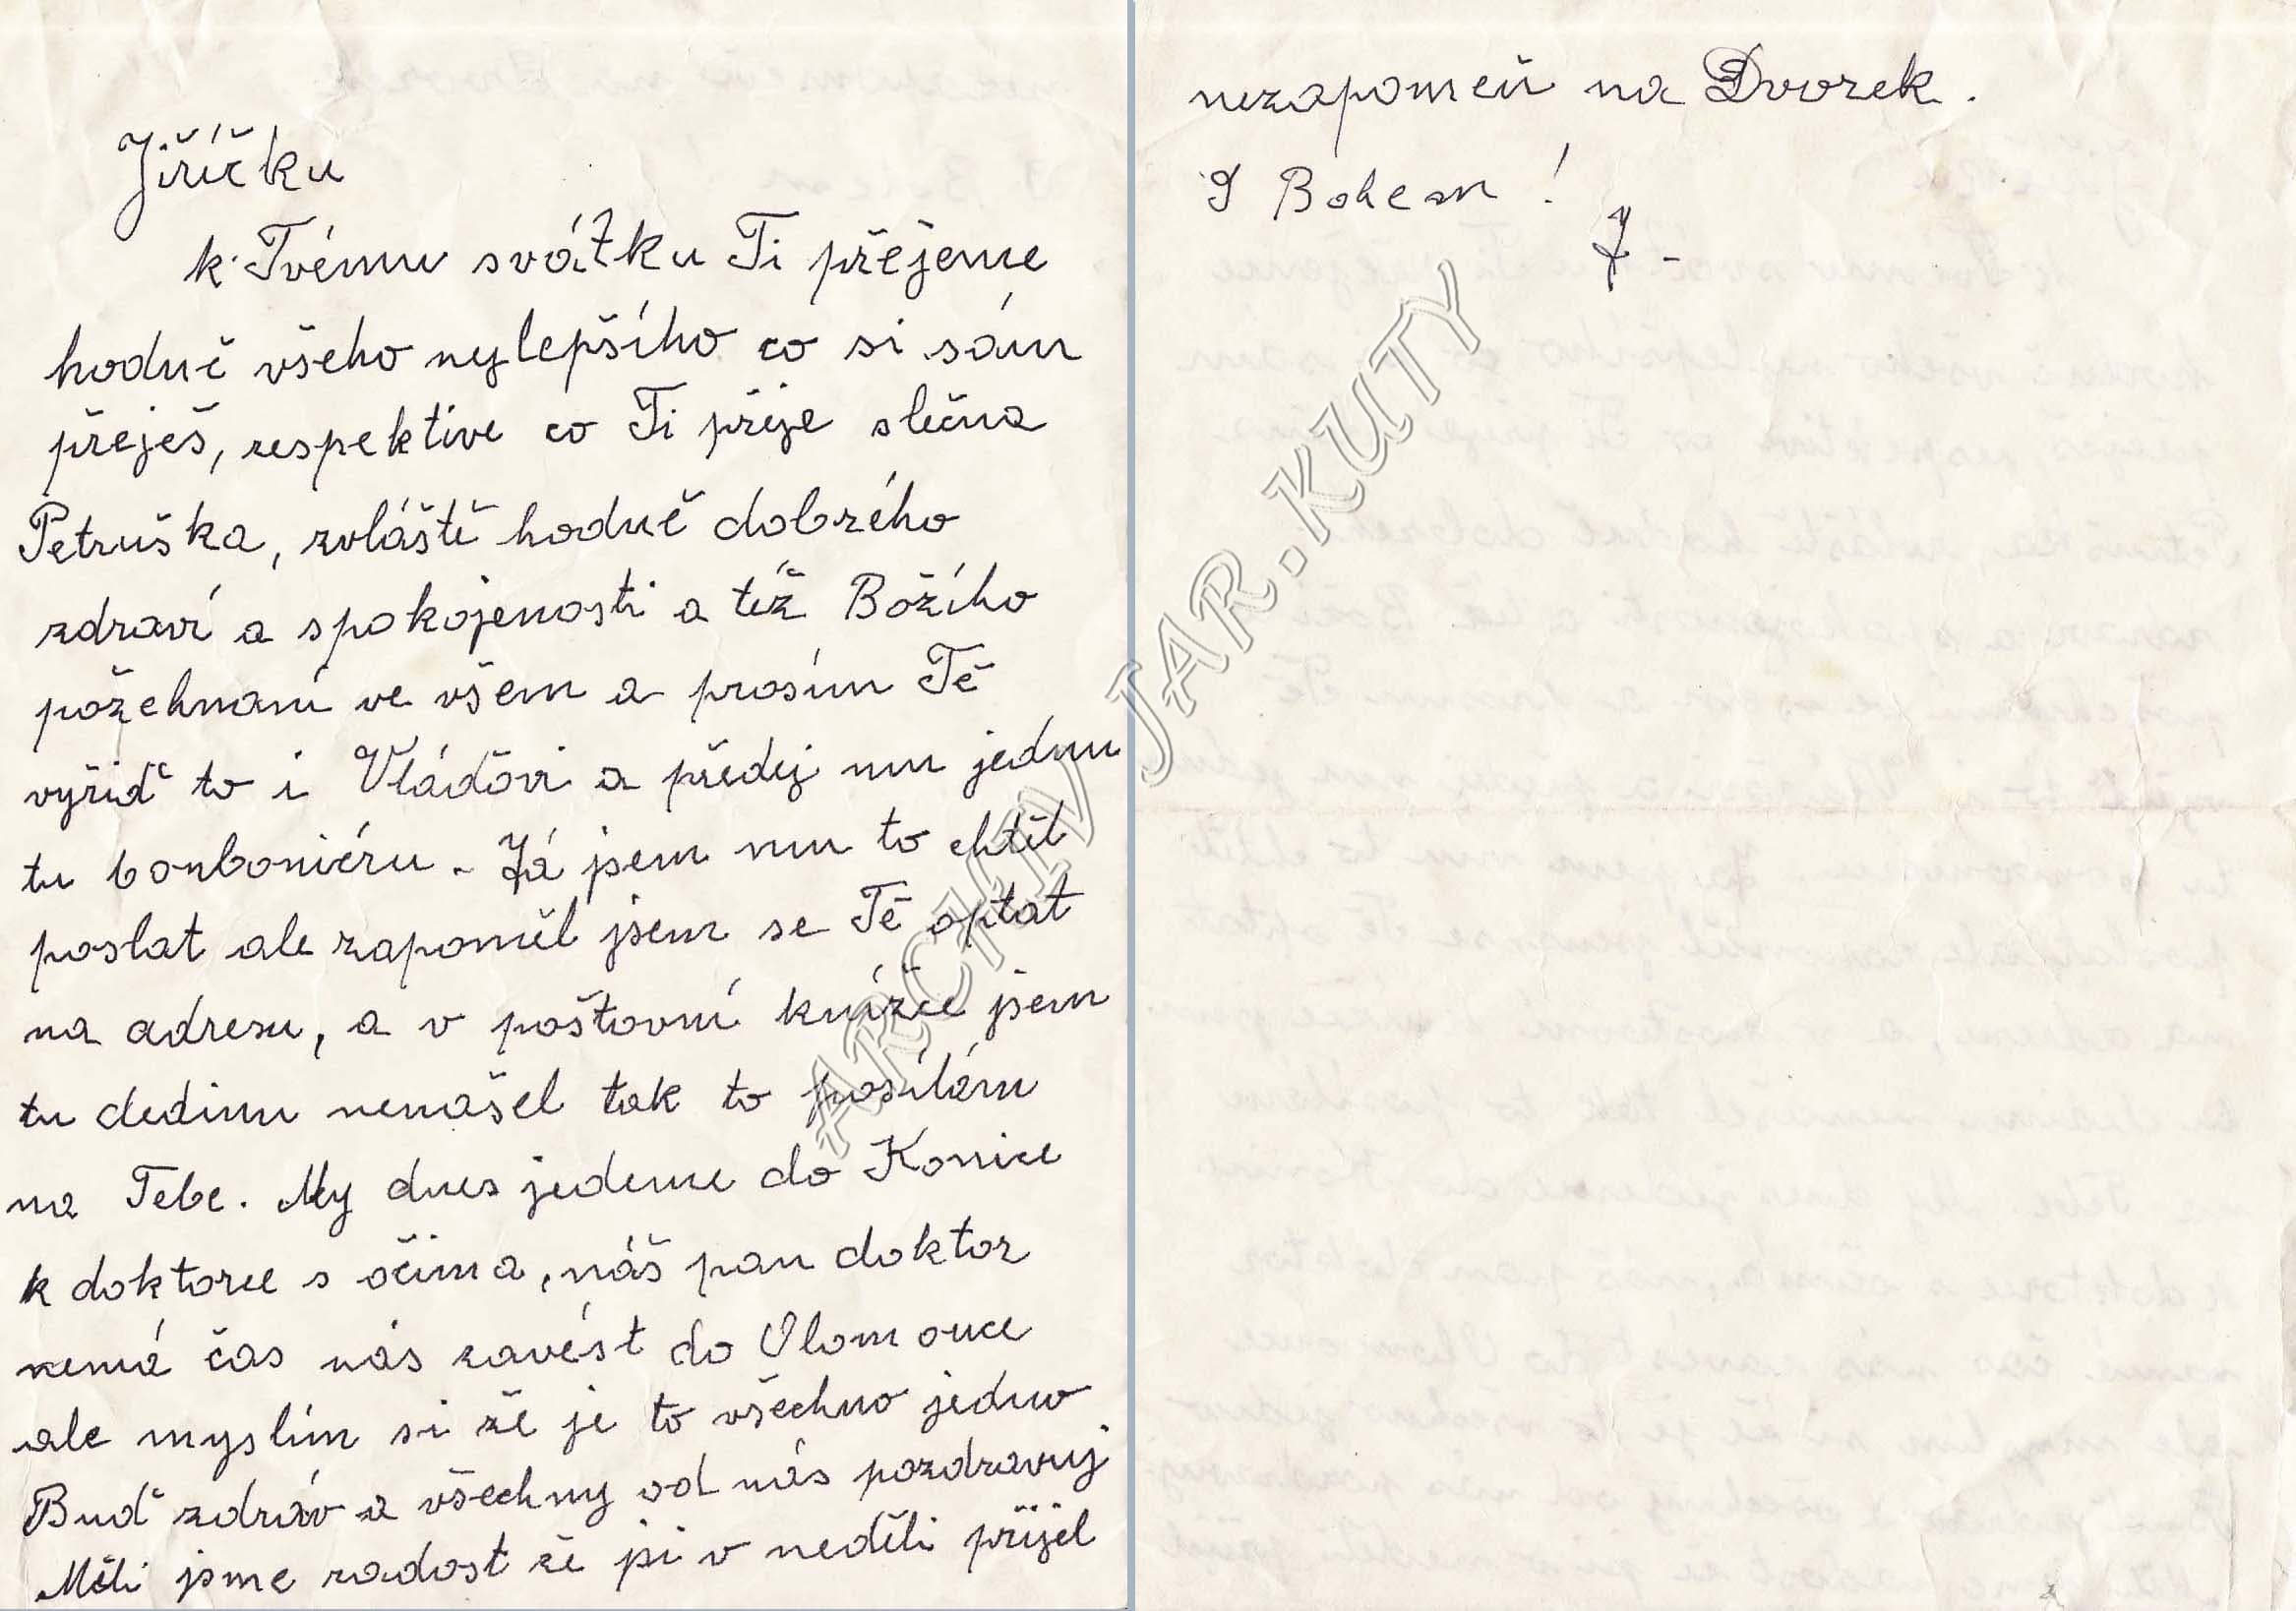 Jiříčku
k Tvému svátku Ti přejeme
hodně všeho nejlepšího co si sám
přeješ, respektive co Ti přeje slečna
Petruška, zvláště hodně dobrého
zdraví a spokojenosti a též Božího
požehnaní ve všem a prosím Tě
vyřiď to i Vláďovi a předej mu jednu
tu bonboniéru. Já jsem mu to chtěl
poslat ale zapoměl jsem se Tě optat
na adresu, a v poštovní knížce jsem
tu dedinu nenašel tak to posílám
na Tebe. My dnes jedeme do Konice
k doktorce s očima, náš pan doktor
nemá čas nás zavést do Olomouce
ale myslím si že je to všechno jedno
Buď zdráv a všechny od nás pozdravuj
Měli jsme radost že jsi v neděli přijel
nezapomeň na Dvorek.
S Bohem!
J -
ARCHIV JAR..KUTY